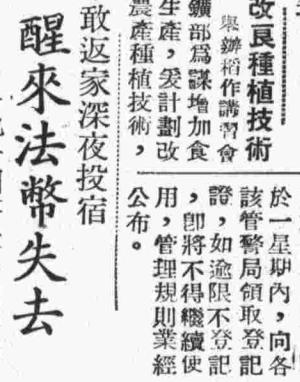 改良種植技術
舉辦稻作講習會
鑛部爲謀增加食
生產，爰計劃改
農產種植技術，
於一星期內，向各
該管警局領取登記
證，如逾限不登記
，卽將不得繼續使
用，管理規則業經
公布。
敢返家深夜投宿
醒來法幣失去